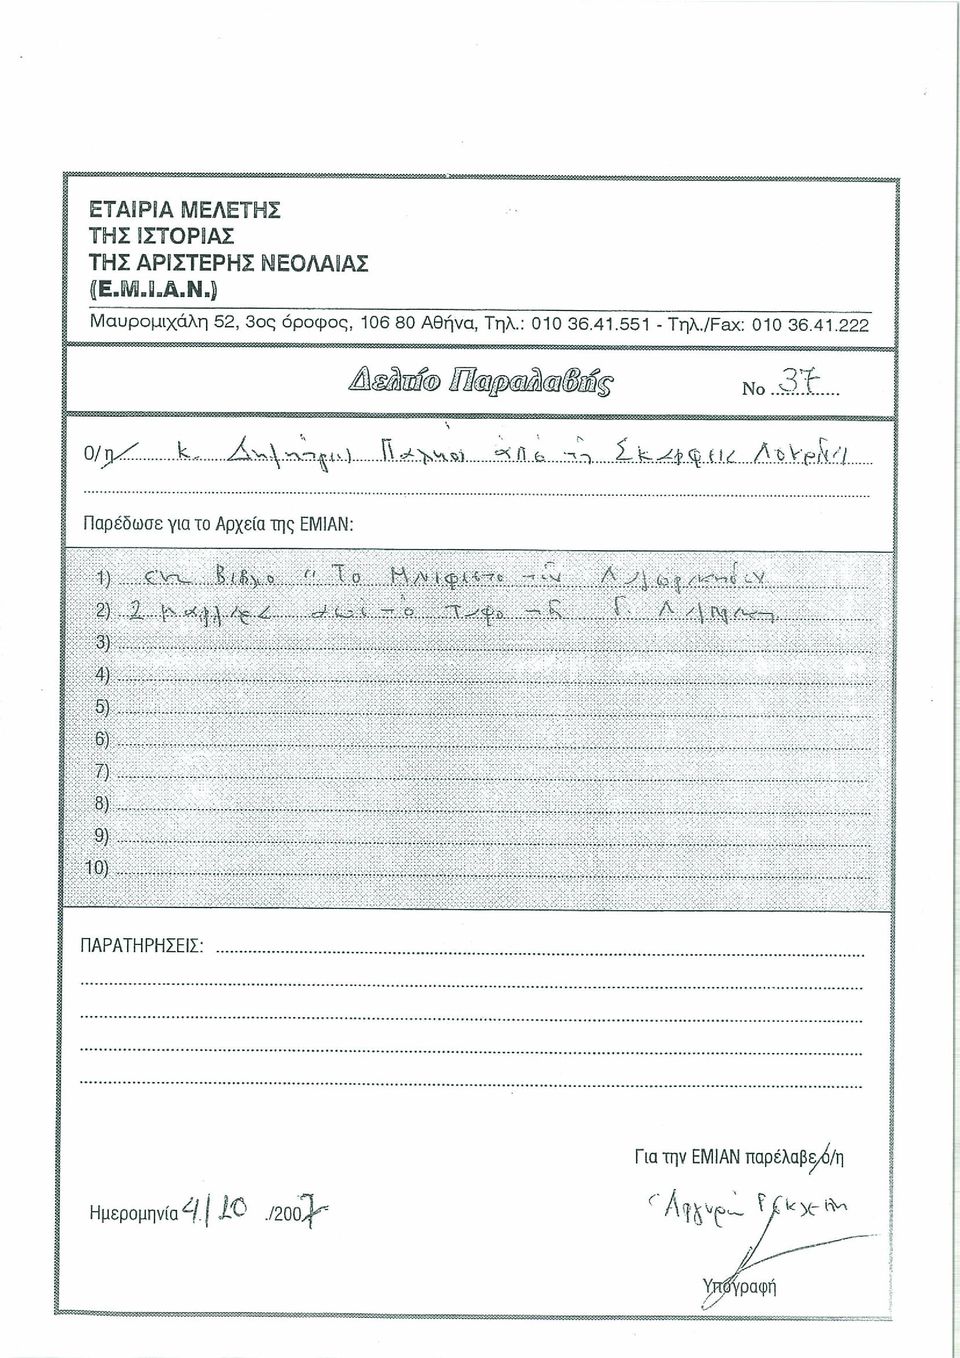 ΕΤΑΙΡΙΑ ΜΕΛΕΤΗΣ
ΤΗΣ ΙΣΤΟΡΙΑΣ
ΤΗΣ ΑΡΙΣΤΕΡΗΣ ΝΕΟΛΑΙΑΣ
(Ε.Μ.Ι.Α.Ν.)
Μαυρομιχάλη 52, 3ος όροφος, 106 80 Αθήνα, Τηλ.: 010 36.41.551 - Τηλ./Fax: 010 36.41.222
Δελτίο Παραλαβής Νο 37
Ο/η κ. Δημήτρης από τη
Παρέδωσε για το Αρχεία της ΕΜΙΑΝ:
1) ένα Βιβλίο "Το των
2) 2 από το της Γ.
3)
4)
5)
6)
7)
8)
9)
10)
ΠΑΡΑΤΗΡΗΣΕΙΣ:
Για την ΕΜΙΑΝ παρέλαβε ο/η
Ημερομηνία 4/10 /2007
Υπογραφή